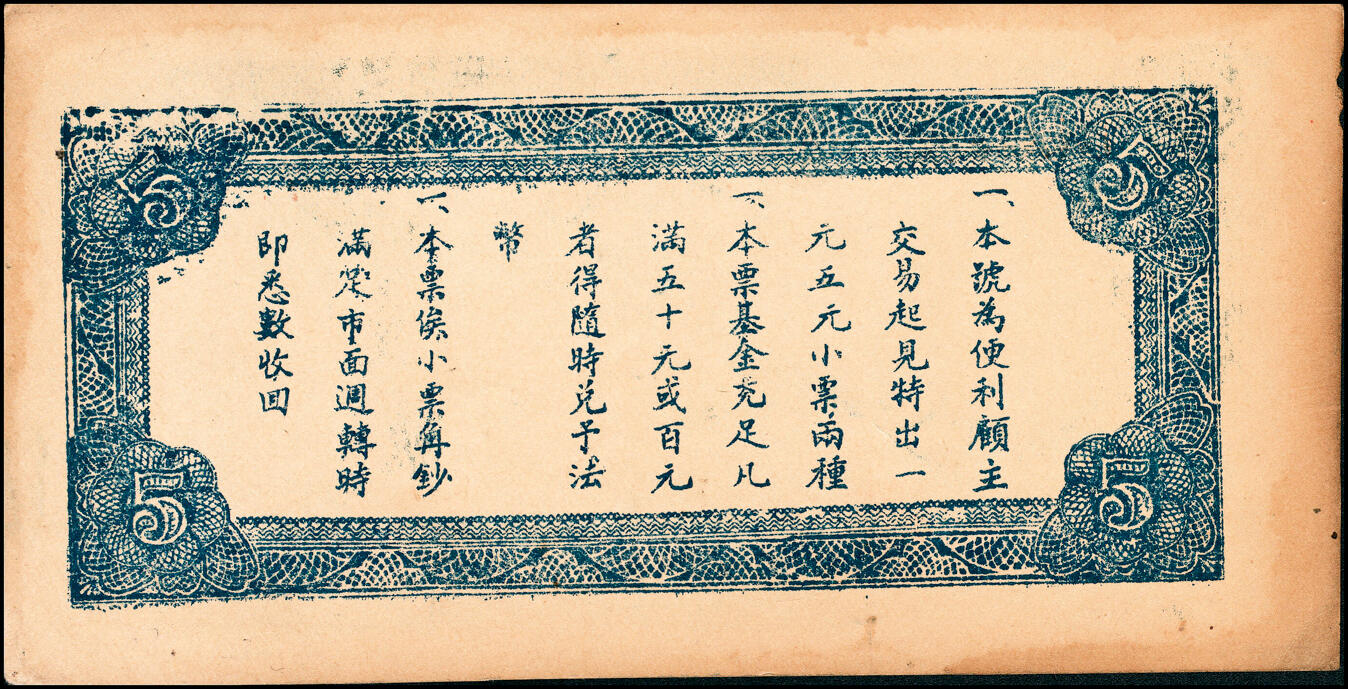 一、本號為便利顧主
交易起見特出一
元五元小票兩種
一、本票基金充足凡
滿五十元或百元
者得隨時兌予法
幣
一、本票俟小票角鈔
滿足市面週轉時
即悉數收回
5
5
5
5